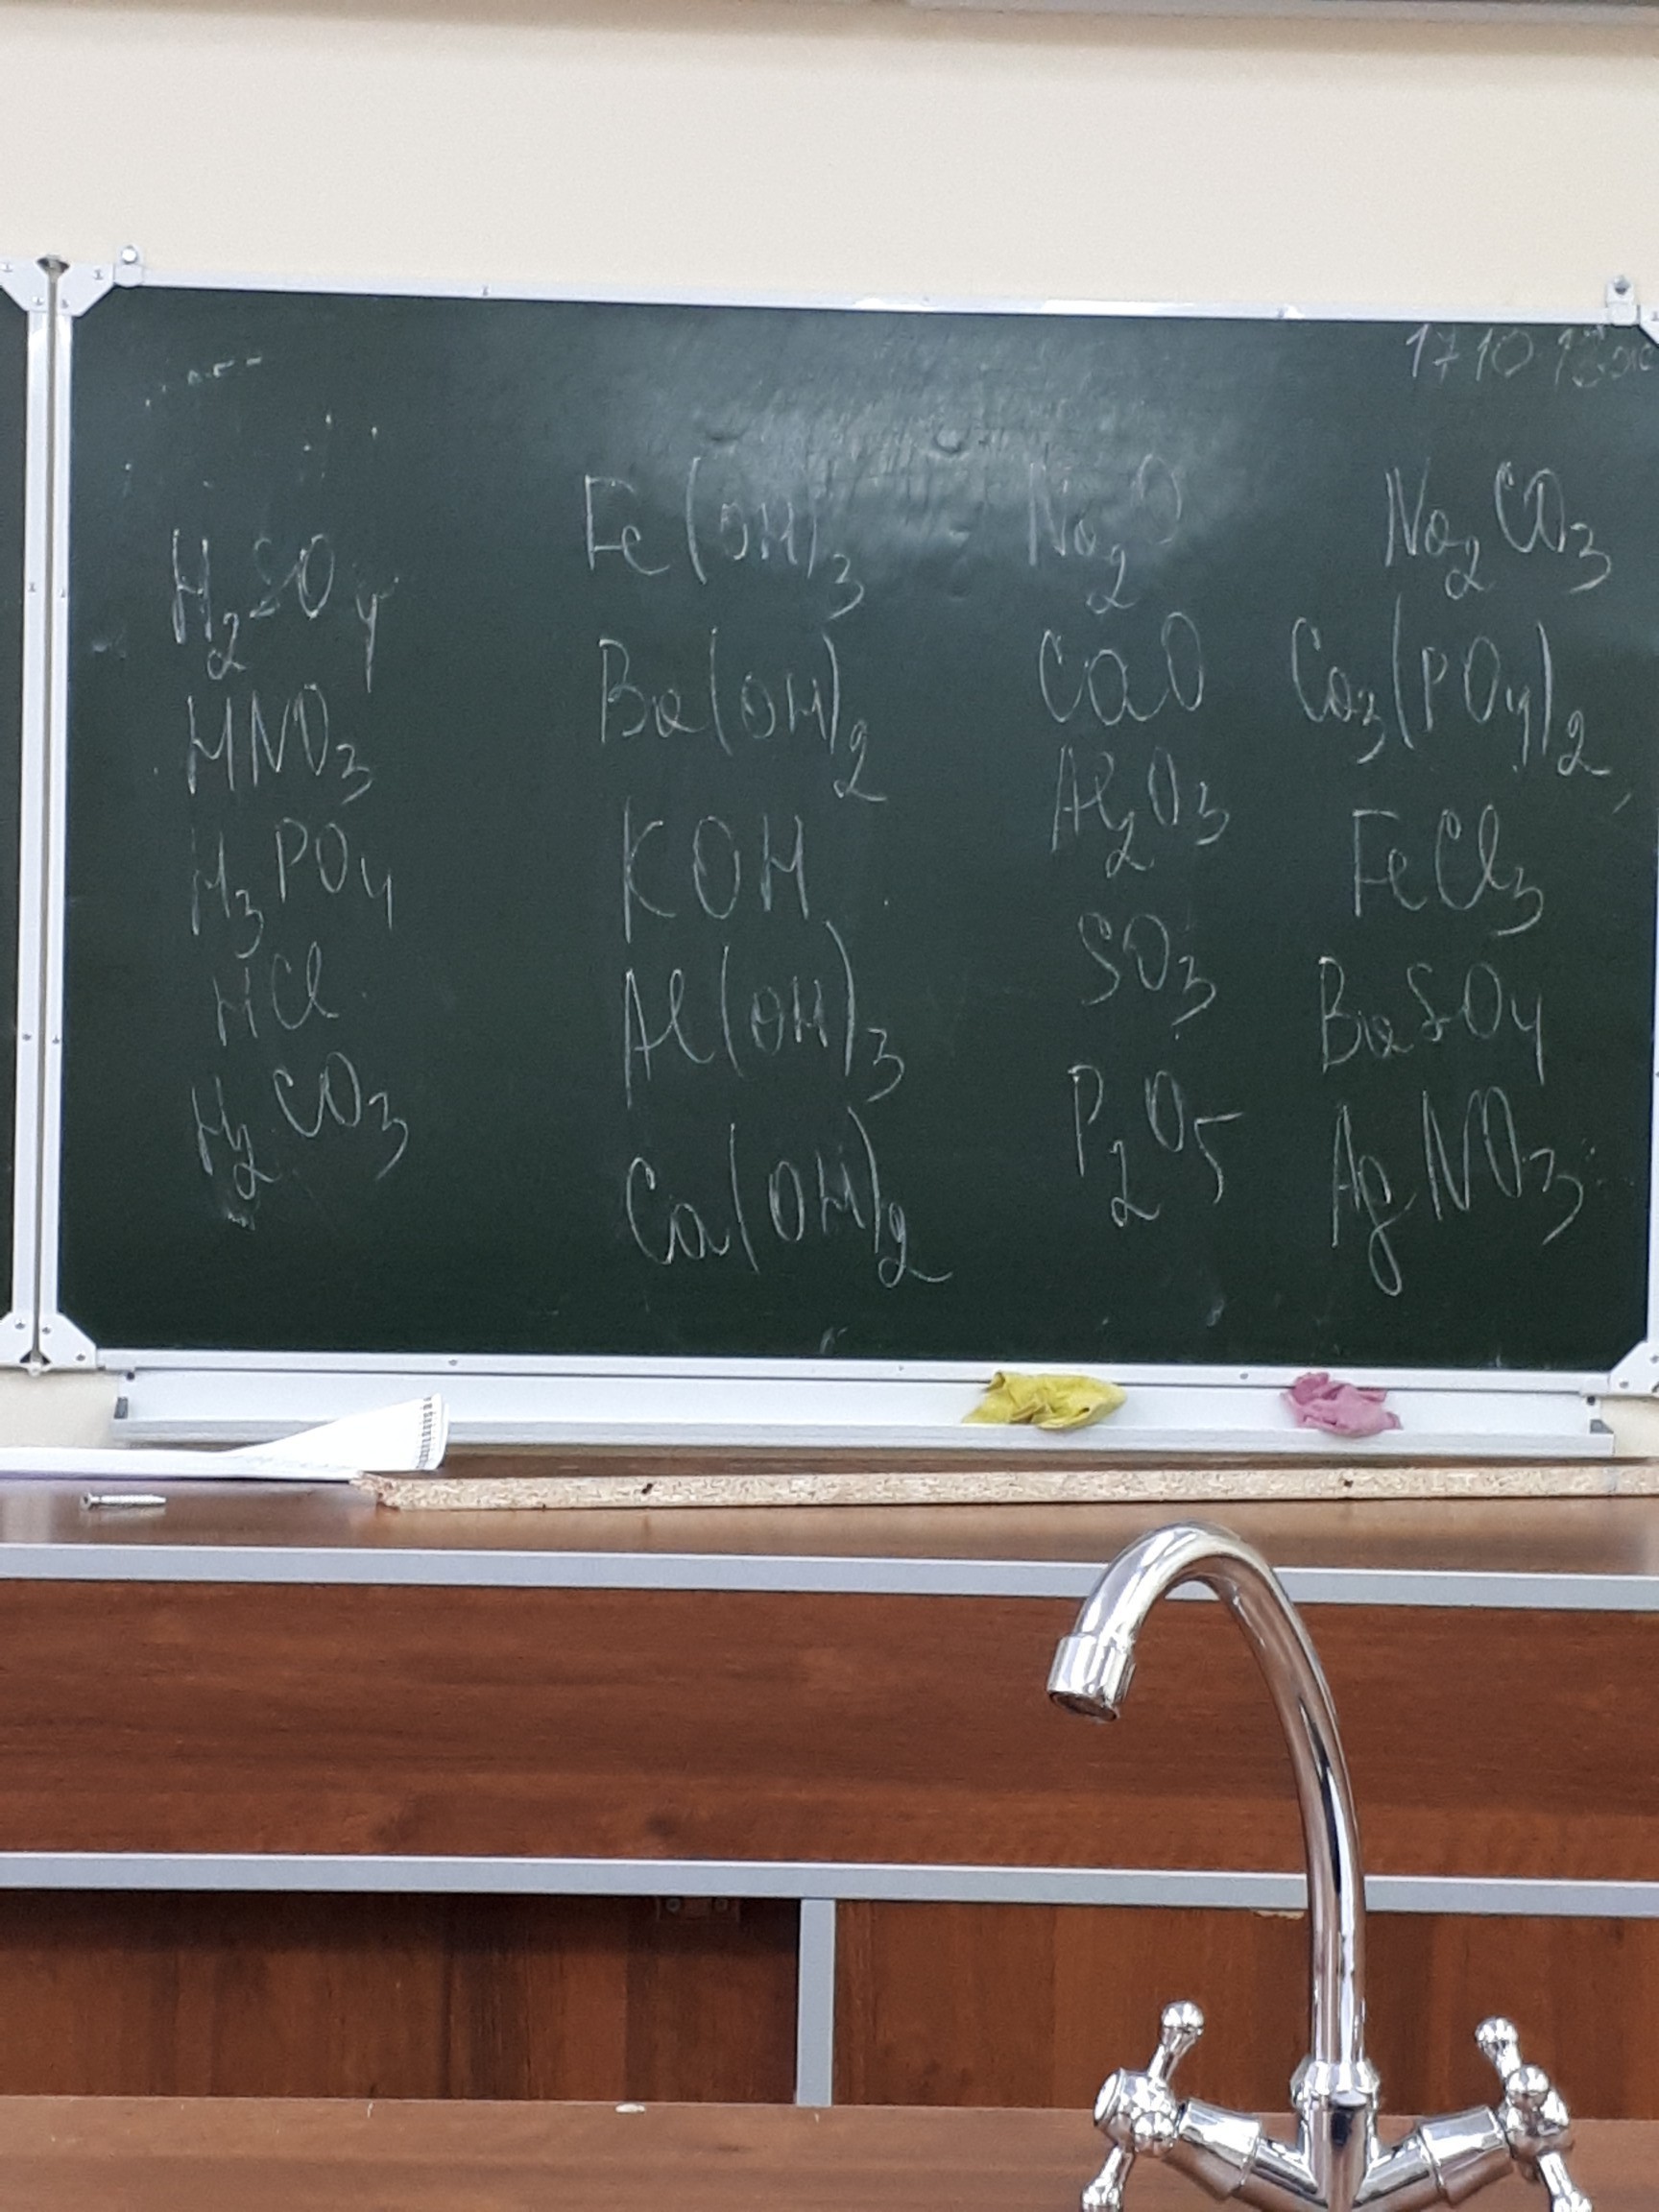 H₂SO₄
HNO₃
H₃PO₄
HCl
H₂CO₃
Fe(OH)₃
Ba(OH)₂
KOH
Al(OH)₃
Ca(OH)₂
Na₂O
CaO
Al₂O₃
SO₃
P₂O₅
Na₂CO₃
Ca₃(PO₄)₂
FeCl₃
BaSO₄
AgNO₃